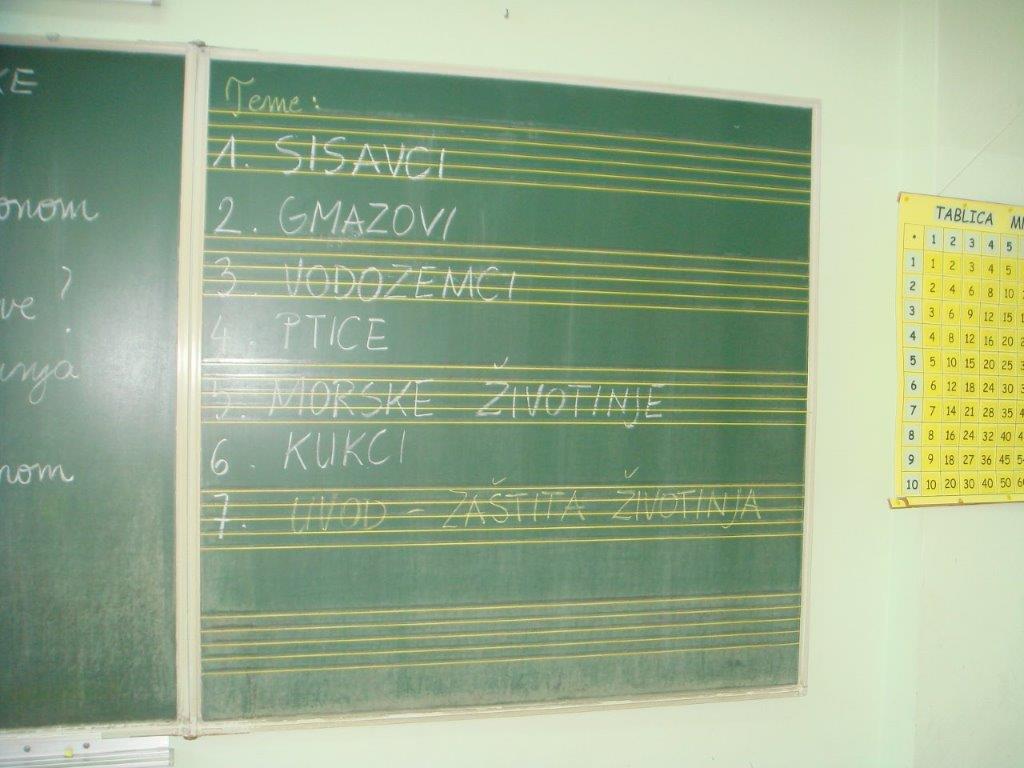 KE
onom
ve ?
nom
Teme:
1. SISAVCI
2. GMAZOVI
3. VODOZEMCI
4. PTICE
5. MORSKE ŽIVOTINJE
6. KUKCI
7. UVOD - ZAŠTITA ŽIVOTINJA
TABLICA
• 1 2 3 4 5
1 1 2 3 4 5
2 2 4 6 8 10
3 3 6 9 12 15
4 4 8 12 16 20
5 5 10 15 20 25
6 6 12 18 24 30
7 7 14 21 28 35
8 8 16 24 32 40
9 9 18 27 36 45
10 10 20 30 40 50